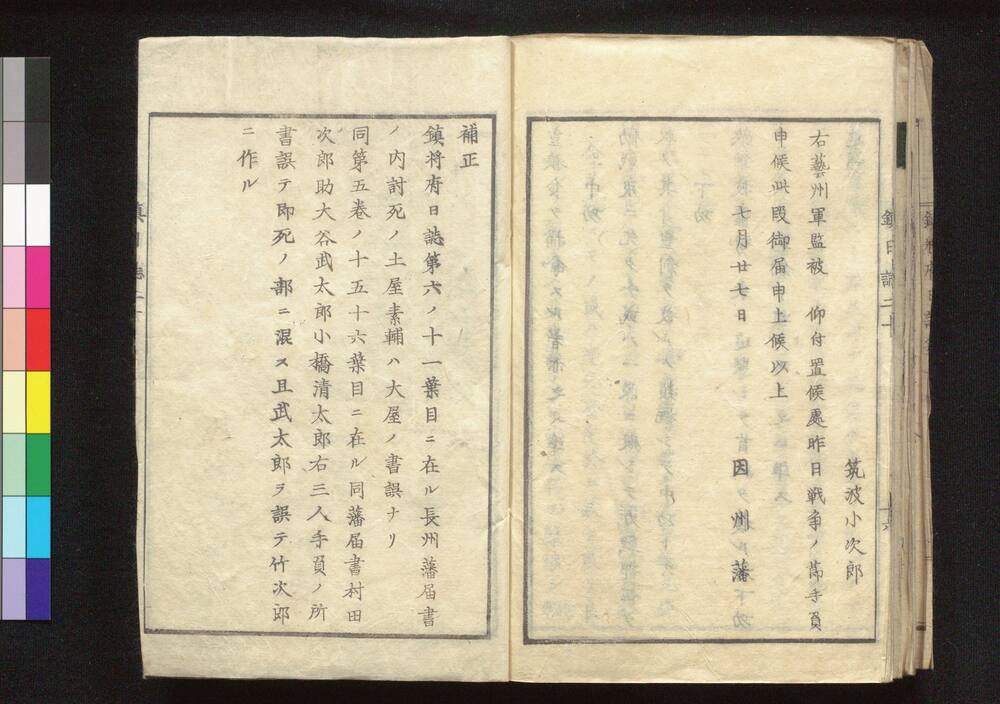 筑波小次郎
右藝州軍監被　仰付置候處昨日戦争ノ節手負
申候此段御届申上候以上
七月廿七日　因州藩
補正
鎮将府日誌第六ノ十一葉目ニ在ル長州藩届書
ノ内討死ノ土屋素輔ハ大屋ノ書誤ナリ
同第五巻ノ十五十六葉目ニ在ル同藩届書村田
次郎助大谷武太郎小橋清太郎右三人手負ノ所
書誤テ即死ノ部ニ混ス且武太郎ヲ誤テ竹次郎
ニ作ル